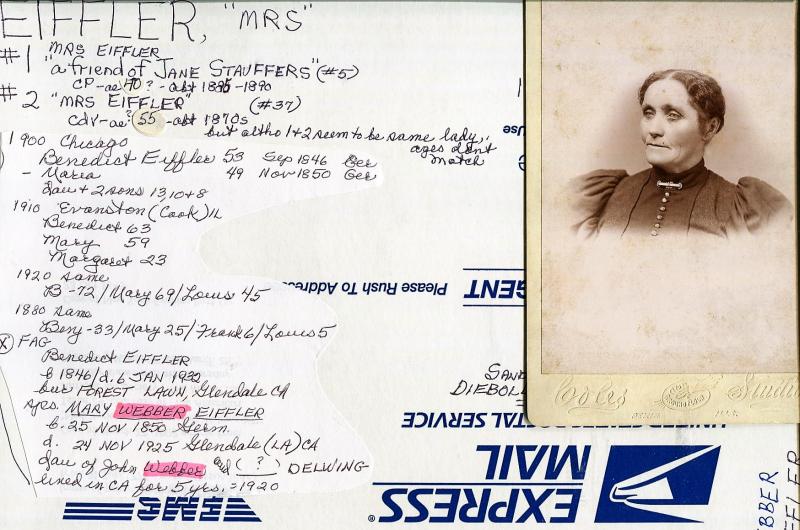 EIFFLER, "MRS"
#1 MRS EIFFLER
"a friend of JANE STAUFFERS" (#5)
CP-ae 40? - abt 1885-1890
#2 "MRS EIFFLER" (#37)
cdv-ae? 55 - abt 1870s
but altho 1+2 seem to be same lady,
ages don't match
1900 Chicago
Benedict Eiffler 53 Sep 1846 Ger
- Maria 49 Nov 1850 Ger
dau + 2 sons 13, 10 + 8
1910 Evanston (Cook) IL
Benedict 63
Mary 59
Margaret 23
1920 same
B-72/Mary 69/Louis 45
1880 same
Benj-33/Mary 25/Frank 6/Louis 5
(X) FAG
Benedict EIFFLER
b 1846/d. 6 JAN 1932
bur FOREST LAWN, Glendale CA
Mrs. MARY WEBBER EIFFLER
b. 25 NOV 1850 Germ.
d. 24 NOV 1925 Glendale (LA) CA
dau of John Webber and (?) DELWING
lived in CA for 5 yrs. = 1920
use
Please Rush To Addres
GENT
SAN
DIEBOL
UNITED STATES POSTAL SERVICE
EXPRESS
MAIL
EMS
Coles
Studio
BBER
FFLER